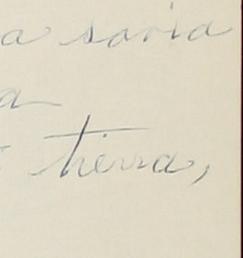 a savia
a
tierra,